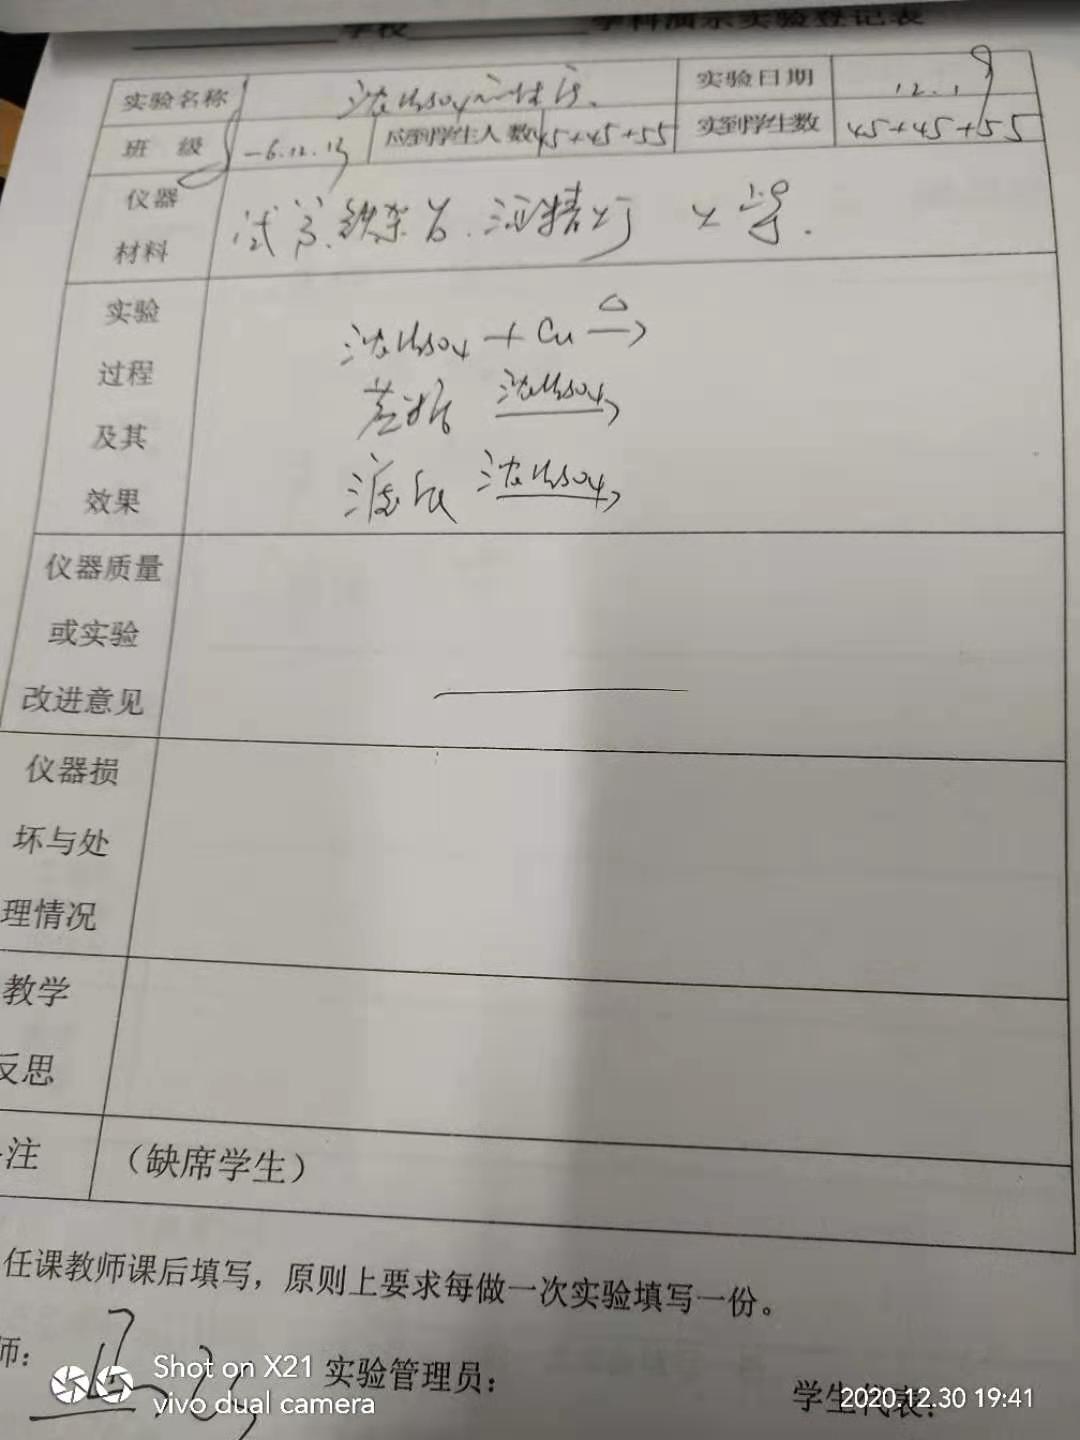 学校 学科演示实验登记表
实验名称 浓H₂SO₄的性质. 实验日期 12.19
班 级 6.12.13 应到学生人数 45+45+55 实到学生数 45+45+55
仪器
材料
试管.铁架台.酒精灯
实验
过程
及其
效果
浓H₂SO₄ + Cu △→
蔗糖 浓H₂SO₄→
滤纸 浓H₂SO₄→
仪器质量
或实验
改进意见
仪器损
坏与处
理情况
教学
反思
注 (缺席学生)
任课教师课后填写，原则上要求每做一次实验填写一份。
师: 实验管理员: 学生代表:
Shot on X21
vivo dual camera
2020.12.30 19:41